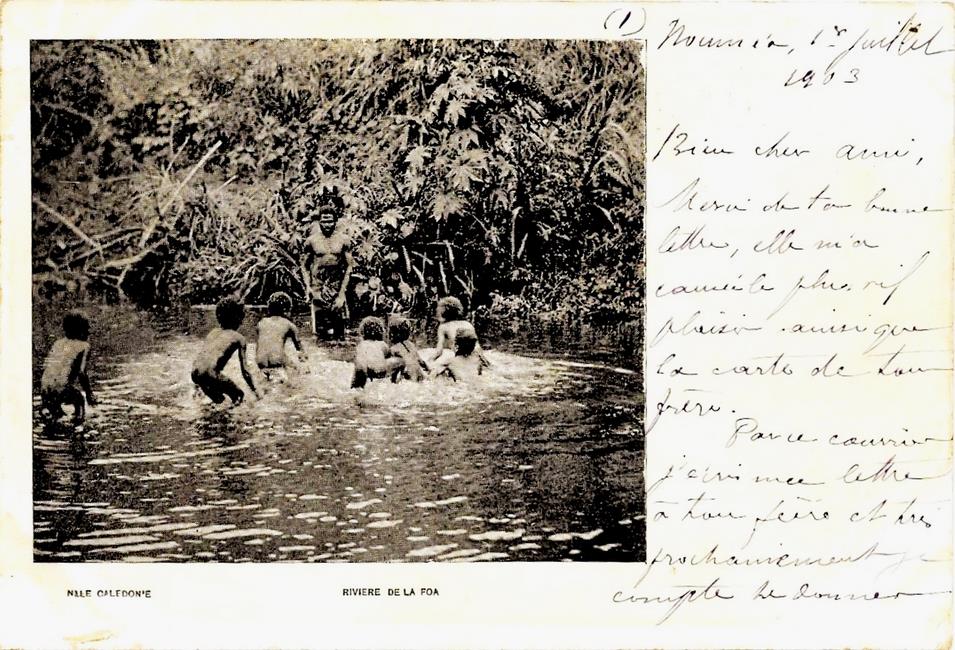 (1)
Nouméa, 1er Juillet
1903
Bien cher ami,
Merci de ta bonne
lettre, elle m'a
causé le plus vif
plaisir ainsi que
la carte de ton
frère.
Par ce courrier
j'écris une lettre
à ton frère et très
prochainement je
compte te donner
NLLE CALEDONIE
RIVIERE DE LA FOA